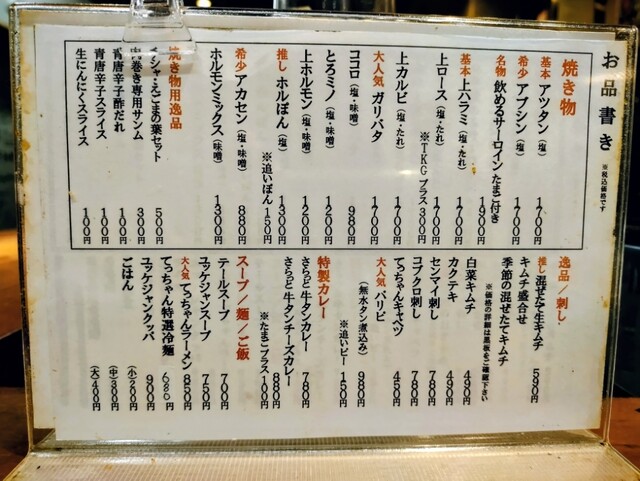 お品書き ※税込価格です
焼き物
基本 アツタン（塩） 1700円
希少 アブシン（塩） 1700円
名物 飲めるサーロイン たまご付き 1900円
基本 上ハラミ（塩・たれ） 1700円
上ロース（塩・たれ） 1700円
※TKGプラス 300円
上カルビ（塩・たれ） 1700円
大人気 ガリバタ 1700円
ココロ（塩・味噌） 980円
とろミノ（塩・味噌） 1200円
上ホルモン（塩・味噌） 1200円
推し ホルぽん（塩） 1300円
※追いぽん 150円
希少 アカセン（塩・味噌） 880円
ホルモンミックス（味噌） 1300円
焼き物用逸品
シャ・えごまの葉セット 500円
巻き専用サンム 300円
青唐辛子酢だれ 100円
青唐辛子スライス 100円
生にんにくスライス 100円
逸品／刺し
推し 混ぜたて生キムチ 590円
キムチ盛合せ
季節の混ぜたてキムチ
※価格の詳細は黒板をご確認下さい
白菜キムチ 490円
カクテキ 490円
センマイ刺し 780円
コブクロ刺し 780円
てっちゃんキャベツ 450円
大人気 パリピ 980円
（無水タン煮込み）
※追いピー 150円
特製カレー
さらっと牛タンカレー 780円
さらっと牛タンチーズカレー 880円
※たまごプラス 100円
スープ／麺／ご飯
テールスープ 700円
ユッケジャンスープ 750円
大人気 てっちゃんラーメン 850円
てっちゃん特選冷麺 680円
ユッケジャンクッパ 900円
ごはん （小）200円
（中）300円
（大）400円